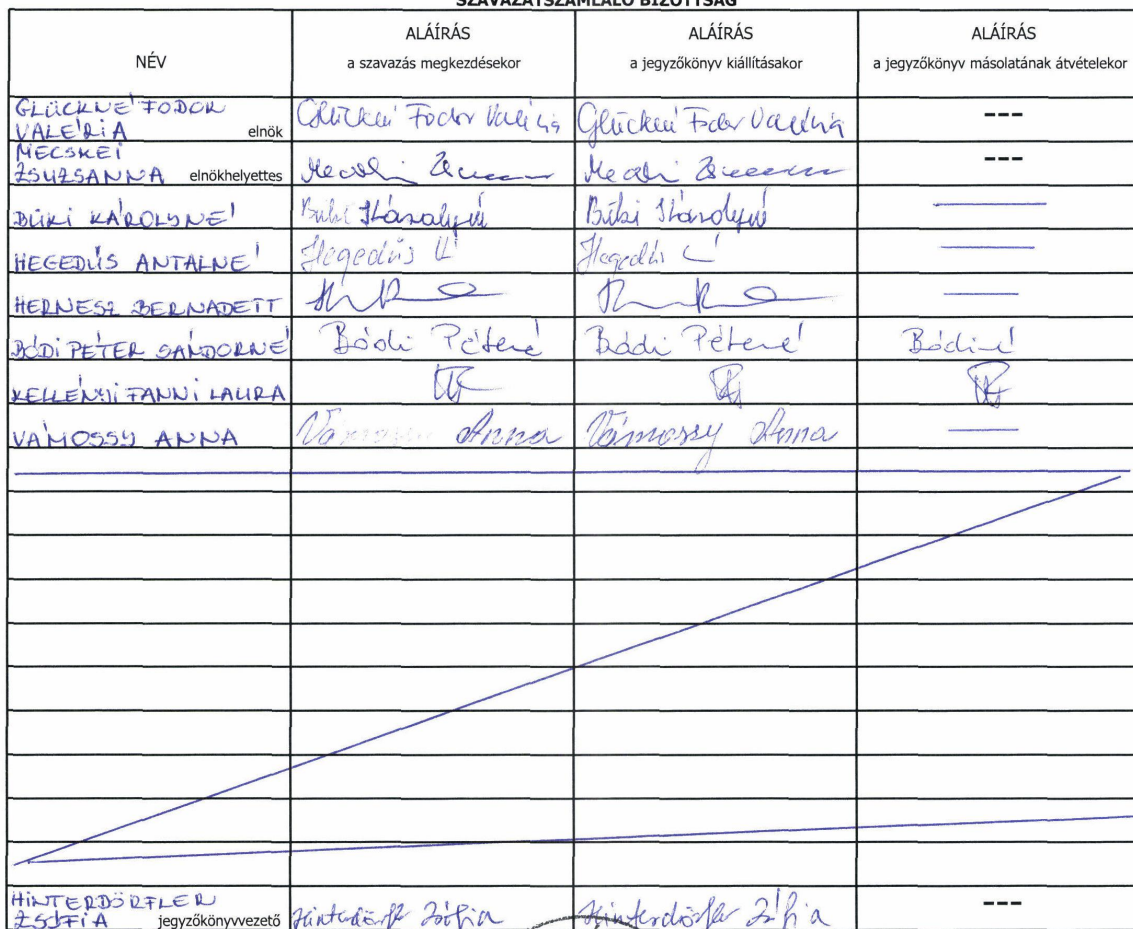 SZAVAZATSZÁMLÁLÓ BIZOTTSÁG
NÉV
ALÁÍRÁS
a szavazás megkezdésekor
ALÁÍRÁS
a jegyzőkönyv kiállításakor
ALÁÍRÁS
a jegyzőkönyv másolatának átvételekor
GLÜCKNÉ FODOR
VALÉRIA elnök Glückné Fodor Valéria Glückné Fodor Valéria ---
MECSKEI
ZSUZSANNA elnökhelyettes ---
BÜKI KÁROLYNÉ Büki Károlyné Büki Károlyné
HEGEDŰS ANTALNÉ Hegedűs Hegedűs
HERNESZ BERNADETT
BÓDI PÉTER SÁNDORNÉ Bódi Péterné Bódi Péterné Bódiné
KELLÉNYI FANNI LAURA
VÁMOSSY ANNA Vámossy Anna Vámossy Anna
HINTERDÖRFLER
ZSÓFIA jegyzőkönyvvezető Hinterdörfler Zsófia Hinterdörfler Zsófia ---